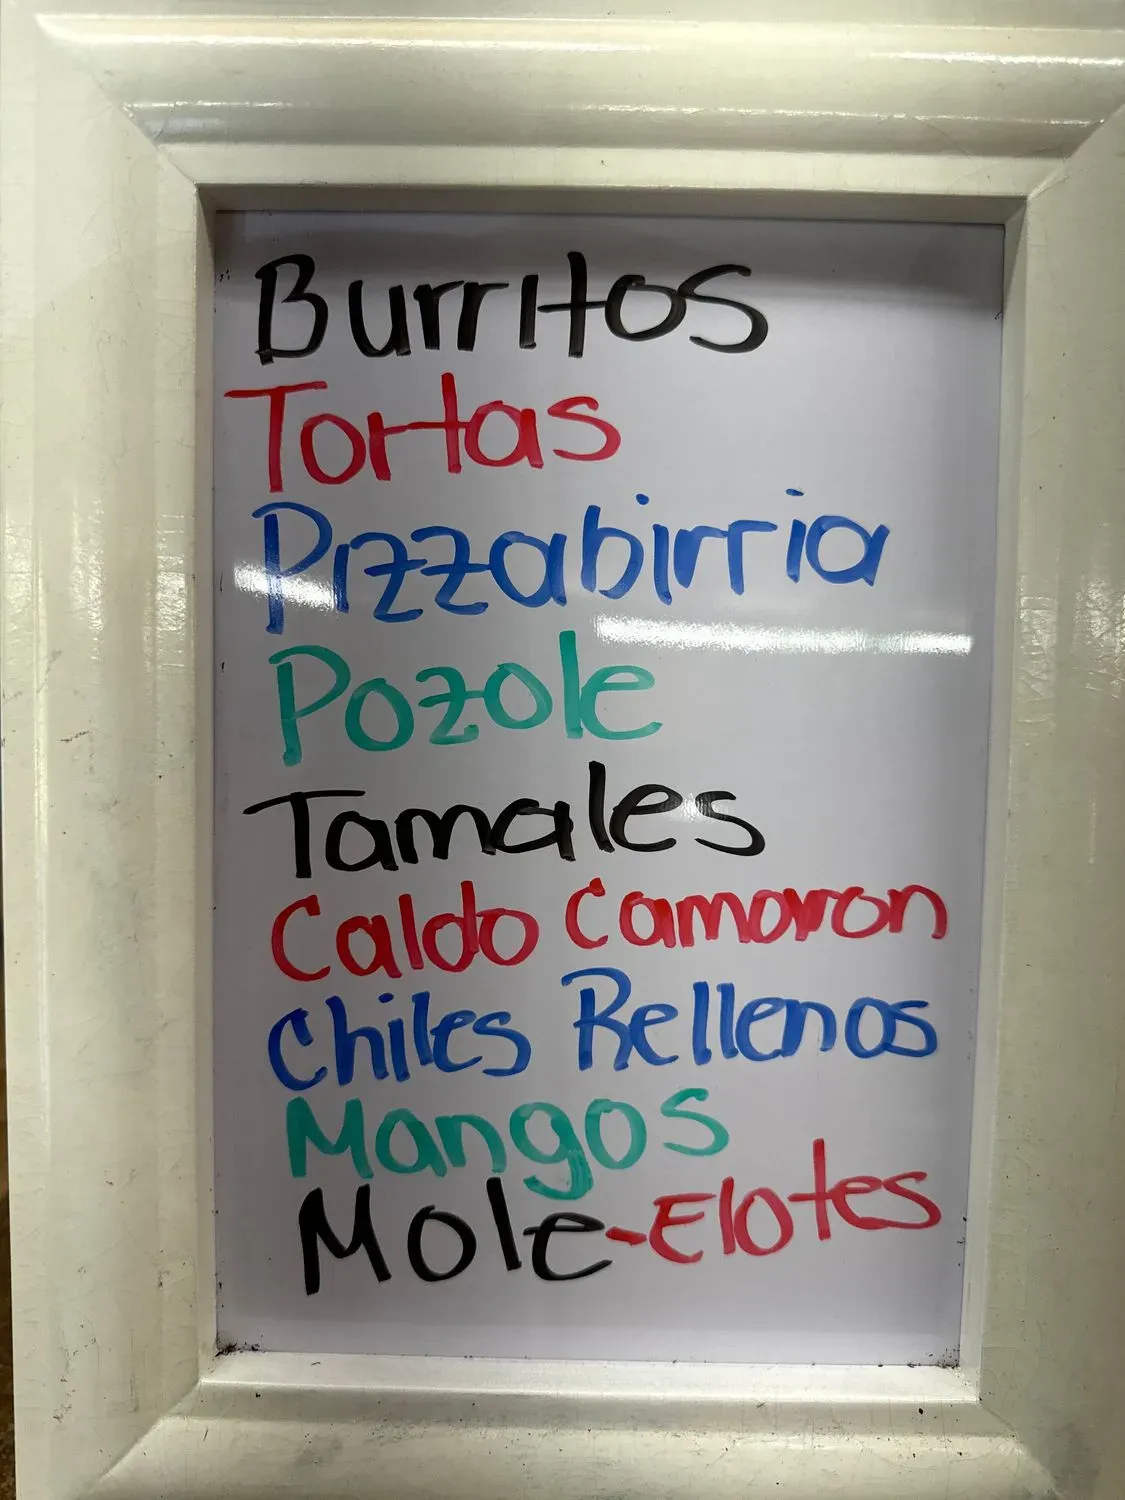 Burritos
Tortas
Pizzabirria
Pozole
Tamales
Caldo Camaron
Chiles Rellenos
Mangos
Mole-Elotes